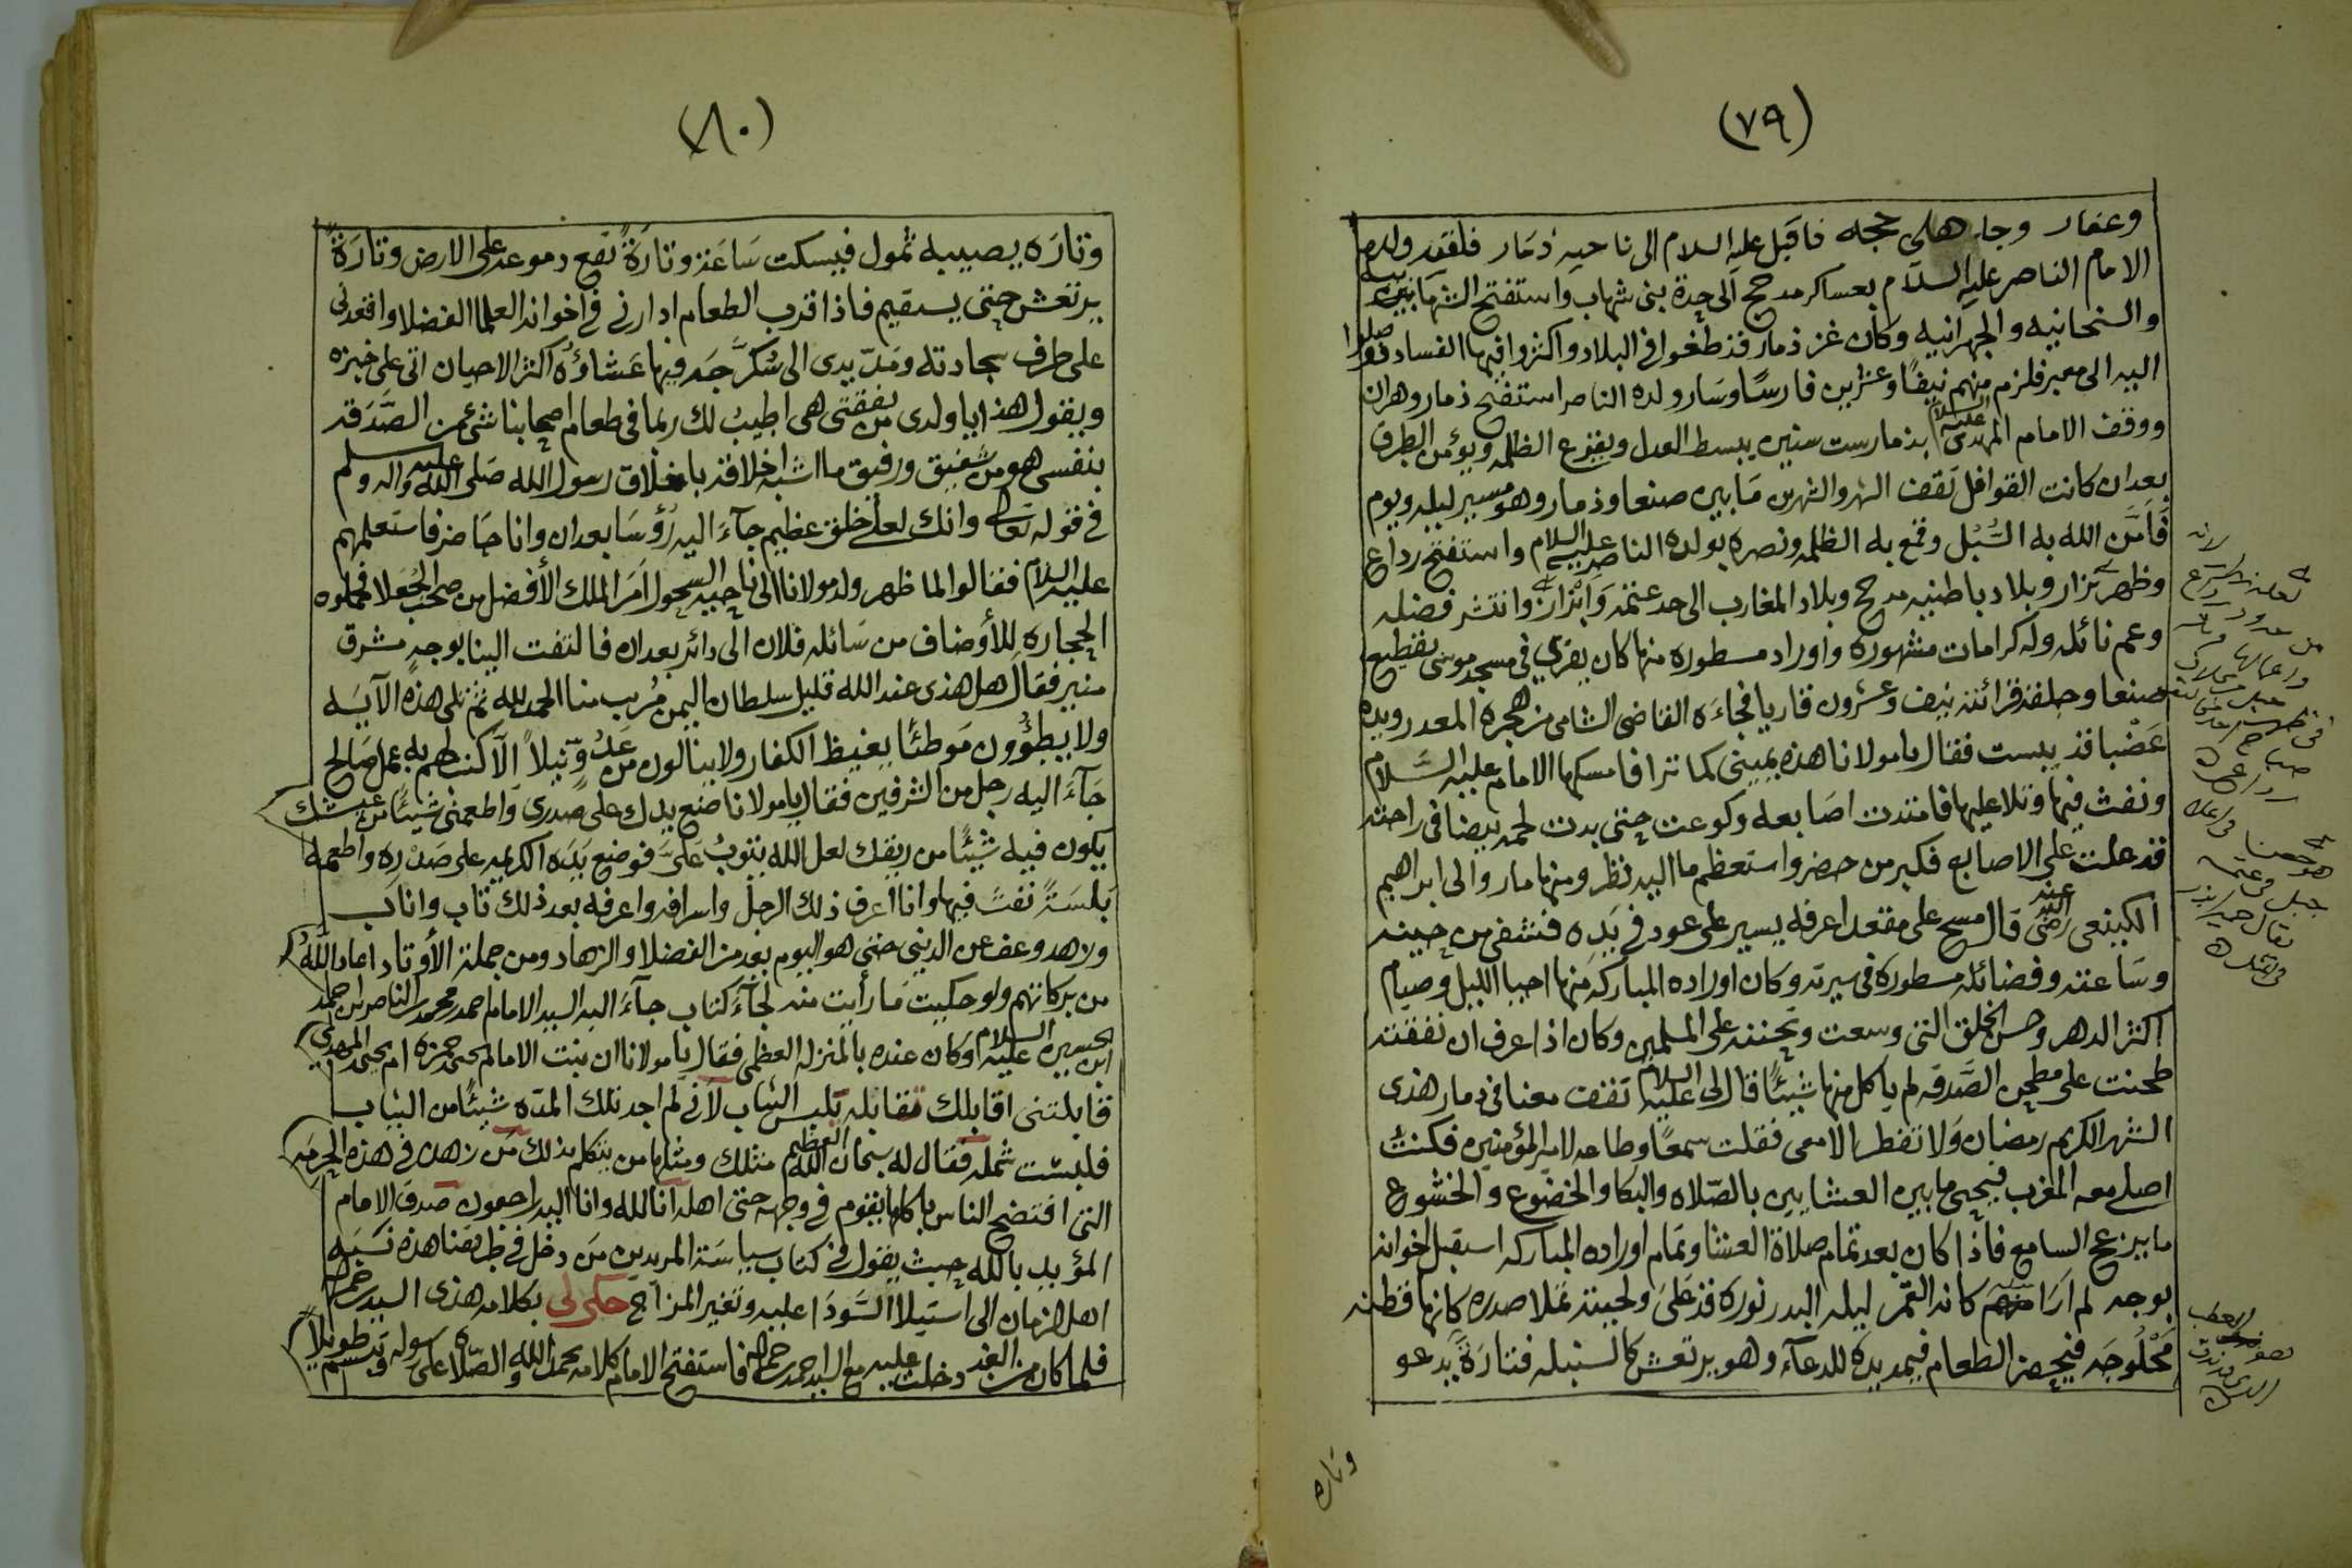 (٧٩)
وعفار وجاء هلى حجه فاقبل عليه السلام الى ناحيه ذمار فلقيه ولده
الامام الناصر عليه السلام بعساكر مدحج الى حدة بنى شهاب واستفتح الشهابيه
والسنحانيه والجهرانيه وكان غز ذمار قد طغوا فى البلاد واكثروا فيها الفساد فوصلوا
اليه الى معبر فلزم منهم نيفًا وعشرين فارسًا وسَار ولده الناصر استفتح ذمار وهران
ووقف الامام المهدى عليه السلام بذمار ست سنين يبسط العدل ويفزع الظلمه ويؤمن الطرق
بعد ان كانت القوافل تقف الشهر والشهرين مَا بين صنعا وذمار وهو مسير ليله ويوم
فاَمَّن الله به السُّبُل وقمع به الظلمه ونصره بولده الناصر عليه السلام واستفتح رداع
وظهر نزار وبلاد باطنيه مدحج وبلاد المغارب الى حد عتمه وانتشر فضله
وعم نائله وله كرامات مشهوره واوراد مسطوره منها كان يقرى فى مسجد موسى بقطيع
صنعا وحلقة قرائته نيف وعشرون قاريا فجاءه القاضى الشامى من هجرة المعدر ويده
عَضْبا قد يبست فقال يا مولانا هذه يمينى كما ترا فامسكها الامام عليه السَّلام
ونفث فيها وتلا عليها فامتدت اصَابعه وكوعت حتى بدت لحمه بيضا فى راحته
قد علت على الاصابع فكبر من حضر واستعظم ما اليه نظر ومنها ما روا لى ابراهيم
الكينعى رضى الله عنه قال مسح على مقعد اعرفه يسير على عود فى يَدِه فشفى من حينه
وسَاعته وفضائله مسطوره فى سيرته وكان اوراده المباركه منها احيا الليل وصيام
اكثر الدهر وحسن الخلق التى وسعت وتحننه على المسلمين وكان اذا عرف ان نفقته
طحنت على مطحن الصَّدقه لم ياكل منها شيئًا قال لى عليه السلام تقف معنا فى ذمار هذى
الشهر الكريم رمضان وَلا تفطر الا معى فقلت سمعًا وطاعه لامير المؤمنين فكنتُ
اصلى معه المغرب فيحيى ما بين العشايين بالصّلاه والبكا والخضوع والخشوع
ما يزعج السامع فاذا كان بعد تمام صلاة العشا وتمام اوراده المباركه استقبل اخوانه
بوجه لم ارَا مثله كانه القمر ليله البدر نوره قد عَلى ولحيته تملا صدره كانها قطنه
مَحْلُوجَه فيحضر الطعام فيمد يده للدعآء وهو يرتعش كالسنبله فتارَةً يدعو
وتاره
(٨٠)
وتارَه يصيبه ثمول فيسكت سَاعَة وتارَةً تقع دموعه على الارض وتارَةً
يرتعش حتى يستقيم فاذا قرب الطعام ادارنى فى اخوانه العلما الفضلا واقعدنى
على طرف سجادته ومَدّ يدى الى سُكرَّجَه فيها عَشاؤه اكثر الاحيان اتى على خبزه
ويقول هذا يا ولدى من نفقتى هى اطيبُ لك ربما فى طعام اصحابنا شئ من الصَّدَقه
بنفسى هو من شفيق ورفيق ما اشبه اخلاقه باخلاق رسول الله صَلى الله عليه واله وسلم
فى قوله تعالى وانك لعلى خلق عظيم جآءَ اليه رُؤسَا بعدان وانا حَاضر فاستعلمهم
عليه السلام فقالوا لما ظهر ولد مولانا الى ناحيه السحول امَرَ الملك الأفضل من صحب الجُعَلا فحملوه
الحجاره للأوضاف من سَائله فلان الى دائر بعدان فالتفت الينا بوجهٍ مشرق
منير فقال هل هذى عند الله قليل سلطان اليمن مُرب منا الحمد لله ثم تلى هذه الآيَه
ولا يطؤون مَوطئًا يغيظ الكفار ولا ينالون من عَدُوٍّ نَيلاً الّا كتب لهم به عمل صَالح
جَآءَ اليه رجل من الشرفين فقال يا مولانا ضع يدك على صَدرى وَاطعمنى شيئًا من عيشك
يكون فيه شيئًا من ريقك لعل الله يتوبُ عَلىَّ فوضع يَدَه الكريمه على صَدْره واطعمه
بَلسَةً نفث فيها وانا اعرف ذلك الرجل واسرافه واعرفه بعد ذلك تاب واناب
وزهد وعف عن الدنيى حتى هو اليوم يعد من الفضلا والزهاد ومن جملة الأوتاد اعاد اللهُ
من بركاتهم ولو حكيت مَا رأيت منه لجآءَ كتاب جآءَ اليه السيد الامام احمد بن محمد الناصر ابن احمد
ابن الحسين عليه السلام وكان عنده بالمنزله العظمى فقال يا مولانا ان بنت الامام يحيى بن حمزه ام يحيى المهدى
قابلتنى اقابلك مقابله بلبس الثياب لأنى لم اجد تلك المدّه شيئًا من الثياب
فلبست شمله فقال له سبحان الله العظيم مثلك ومثلها من يتكلم بذلك مَن زهد فى هذه الحرمَه
التى افتضح الناس باكلها يقوم فى وجهه حتى اهله انا لله وانا اليه راجعون صدق الامام
المؤيد بالله حيث يقول فى كتاب سياسَة المريدين مَن دخل فى طريقنا هذه نسَبه
اهل الزمان الى استيلا السَّودَا عليه وتغير المزاج حكى لى بكلامه هذى السيد
فلما كان من الغد دخلت عليه مع السيد فاستفتح الامام كلامه بحمد الله والصّلاه على رسوله وتبسم طويلاً